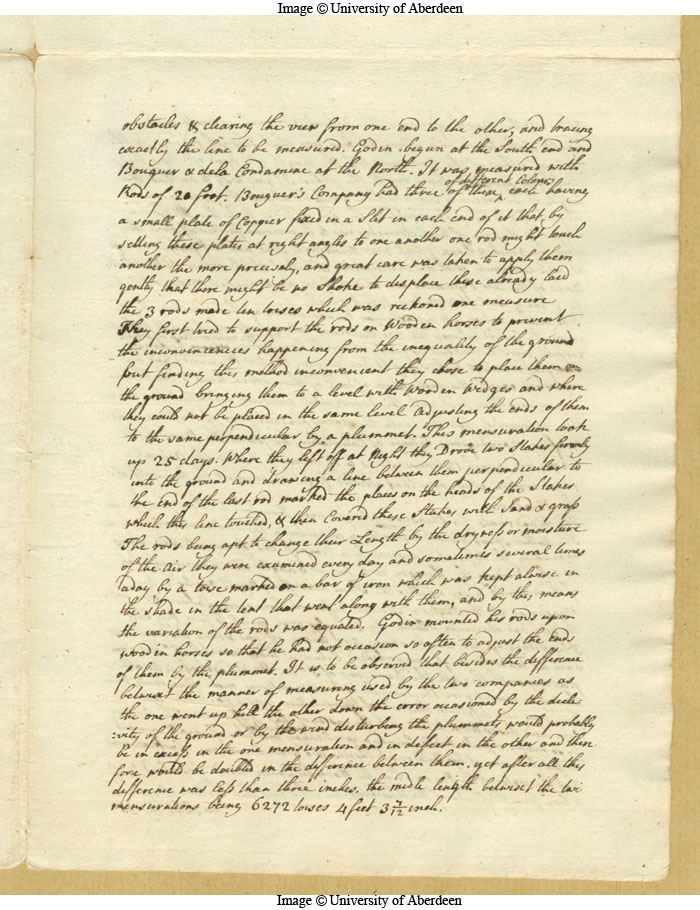 Image © University of Aberdeen
obstacles & clearing the view from one end to the other, and tracing
exactly the line to be measured. Godin begun at the South end and
Bouguer & dela Condamine at the North. It was measured with
of different Colours
Rods of 20 foot. Bouguer's Company had three of these ^ each having
a small plate of Copper fixed in a Slit in each end of it that, by
setting these plates at right angles to one another one rod might touch
another the more precisely, and great care was taken to apply them
gently that there might be no Shoke to displace these already laid
the 3 rods made ten toises which was reckoned one measure
They first tried to support the rods on Wooden horses to prevent
the inconveniencies happening from the inequality of the ground
but finding this method inconvenient they chose to place them on
the ground bringing them to a level with wooden wedges and where
they could not be placed in the same level Adjusting the ends of them
to the same perpendicular by a plummet. This mensuration took
up 25 days. Where they left off at Night they Drove two Stakes firmly
into the ground and drawing a line between them perpendicular to
the end of the last rod marked the places on the heads of the Stakes
which this line touched, & then Covered these Stakes with Sand & grass
The rods being apt to change their Length by the dryness or moisture
of the Air they were examined every day and sometimes several times
aday by a toise marked on a bar of iron which was kept alwise in
the shade in the tent that went along with them, and by this means
the variation of the rods was equated. Godin mounted his rods upon
wooden horses so that he had not occasion so often to adjust the ends
of them by the plummet. It is to be observed that besides the difference
betwixt the manner of measuring used by the two companies as
the one went up hill the other down the error occasioned by the decli=
:vity of the ground or by the wind disturbing the plummets would probably
be in excess in the one mensuration and in defect in the other and there
fore would be doubled in the difference between them. yet after all this
difference was less than three inches. the midle length betwixt the two
mensurations being 6272 toises 4 feet 3 7/12 inch.
Image © University of Aberdeen